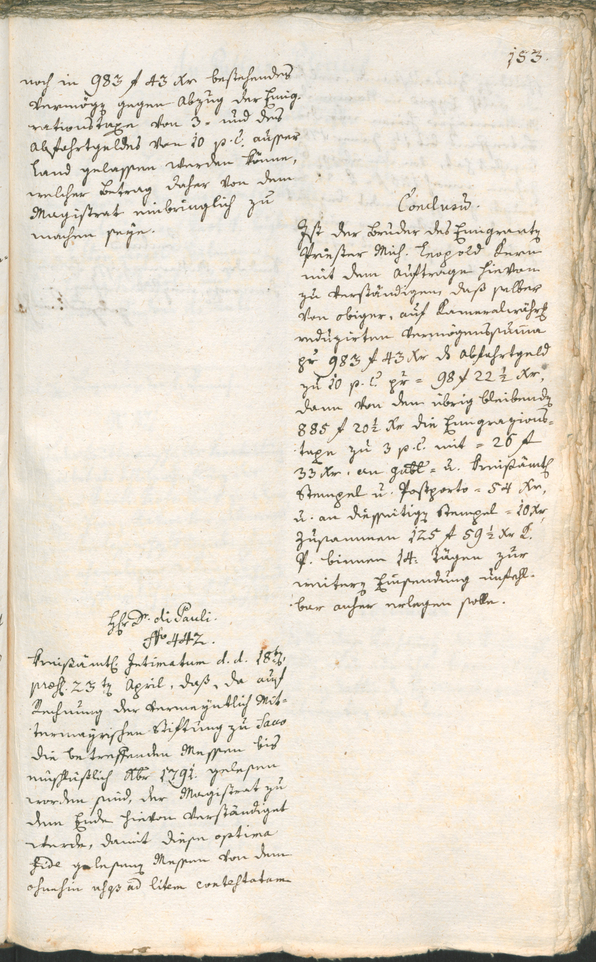 153.
noch in 983 f 43 Xr bestehendes
Vermögen gegen Abzug der Emig-
rationstaxe von 3. und des
Abfahrtgeldes von 10 p.C. ausser
Land gelassen werden könne,
welcher Betrag daher von dem
Magistrat einbringlich zu
machen seye.
Conclusum.
Ist der Bruder des Emigranten
Priester Mich. Leopold Kern
mit dem Auftrage hievon
zu verständigen, daß selber
von obiger, auf Kameralwährung
reduzirten Vermögenssumma
pr 983 f 43 Xr das Abfahrtgeld
zu 10 p.C. pr = 98 f 22 ½ Xr,
dann von dem übrig bleibenden
885 f 20 ½ Xr die Emigrations-
taxe zu 3 p.C. mit = 26 f
33 Xr. an Gub = u. Kreisämtl.
Stempel u. Postporto = 54 Xr,
u. an diesseitigen Stempel = 10 Xr,
zusammen 125 f 59 ½ Xr
binnen 14. Tägen zur
weitern Einsendung unfehl-
bar anher erlegen solle.
H. di Pauli.
No 442.
Kreisämtl. Intimatum d. d. 18ten
praes. 23ten April, daß, da auf
Rechnung der vermeyntlich Mit-
termayrischen Stiftung zu
die betreffenden Messen bis
ausschlüßlich 1791. gelesen
worden sind, der Magistrat zu
dem Ende hievon verständiget
werde, damit diese optima
fide gelesenen Messen von dem
ohnehin usque ad litem contestatam